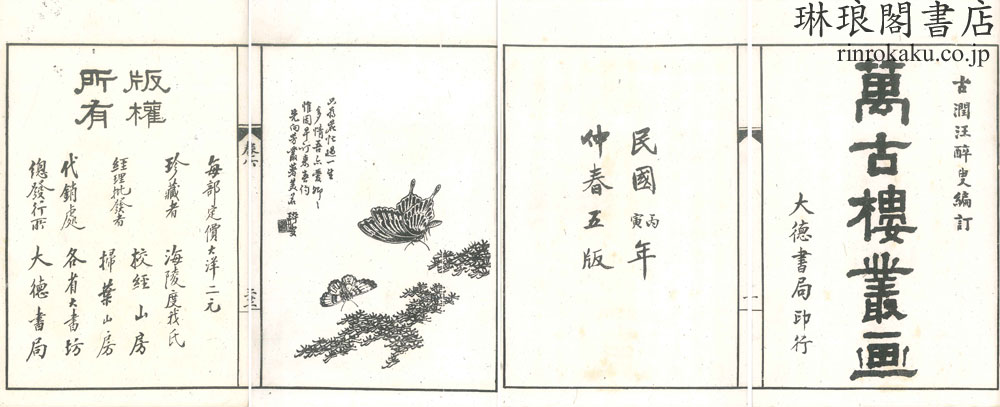 琳琅閣書店
rinrokaku.co.jp
古潤汪醉叟編訂
萬古樓叢画
大德書局印行
民國丙寅年
仲春五版
卷六
版權
所有
每部定價大洋二元
珍藏者 海陵度我氏
經理批發者 校經山房
掃葉山房
代銷處 各省大書坊
總發行所 大德書局